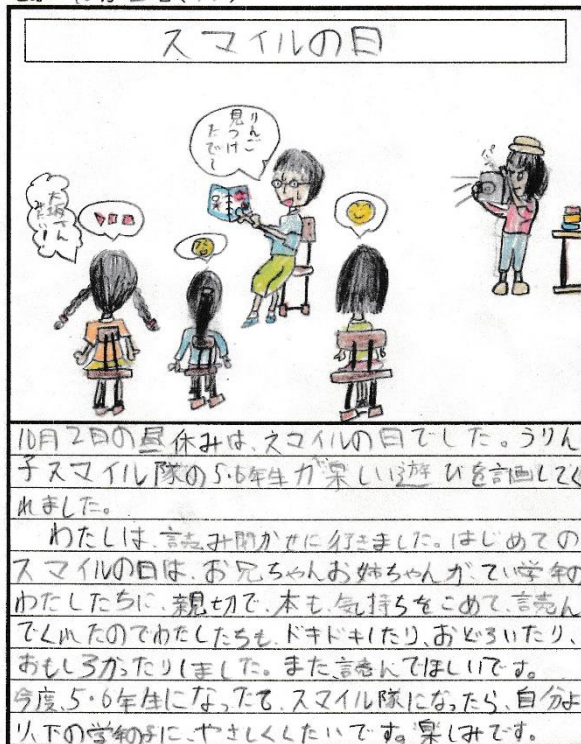 スマイルの日
りんご
見つけ
たで〜
10月2日の昼休みは、スマイルの日でした。うりん
子スマイル隊の5・6年生が楽しい遊びを計画してく
れました。
わたしは、読み聞かせに行きました。はじめての
スマイルの日は、お兄ちゃんお姉ちゃんが、てい学年の
わたしたちに、親切で、本も、気持ちをこめて、読ん
でくれたのでわたしたちも、ドキドキしたり、おどろいたり、
おもしろかったりしました。また、読んでほしいです。
今度、5・6年生になったて、スマイル隊になったら、自分よ
り、下の学年の子に、やさしくしたいです。楽しみです。